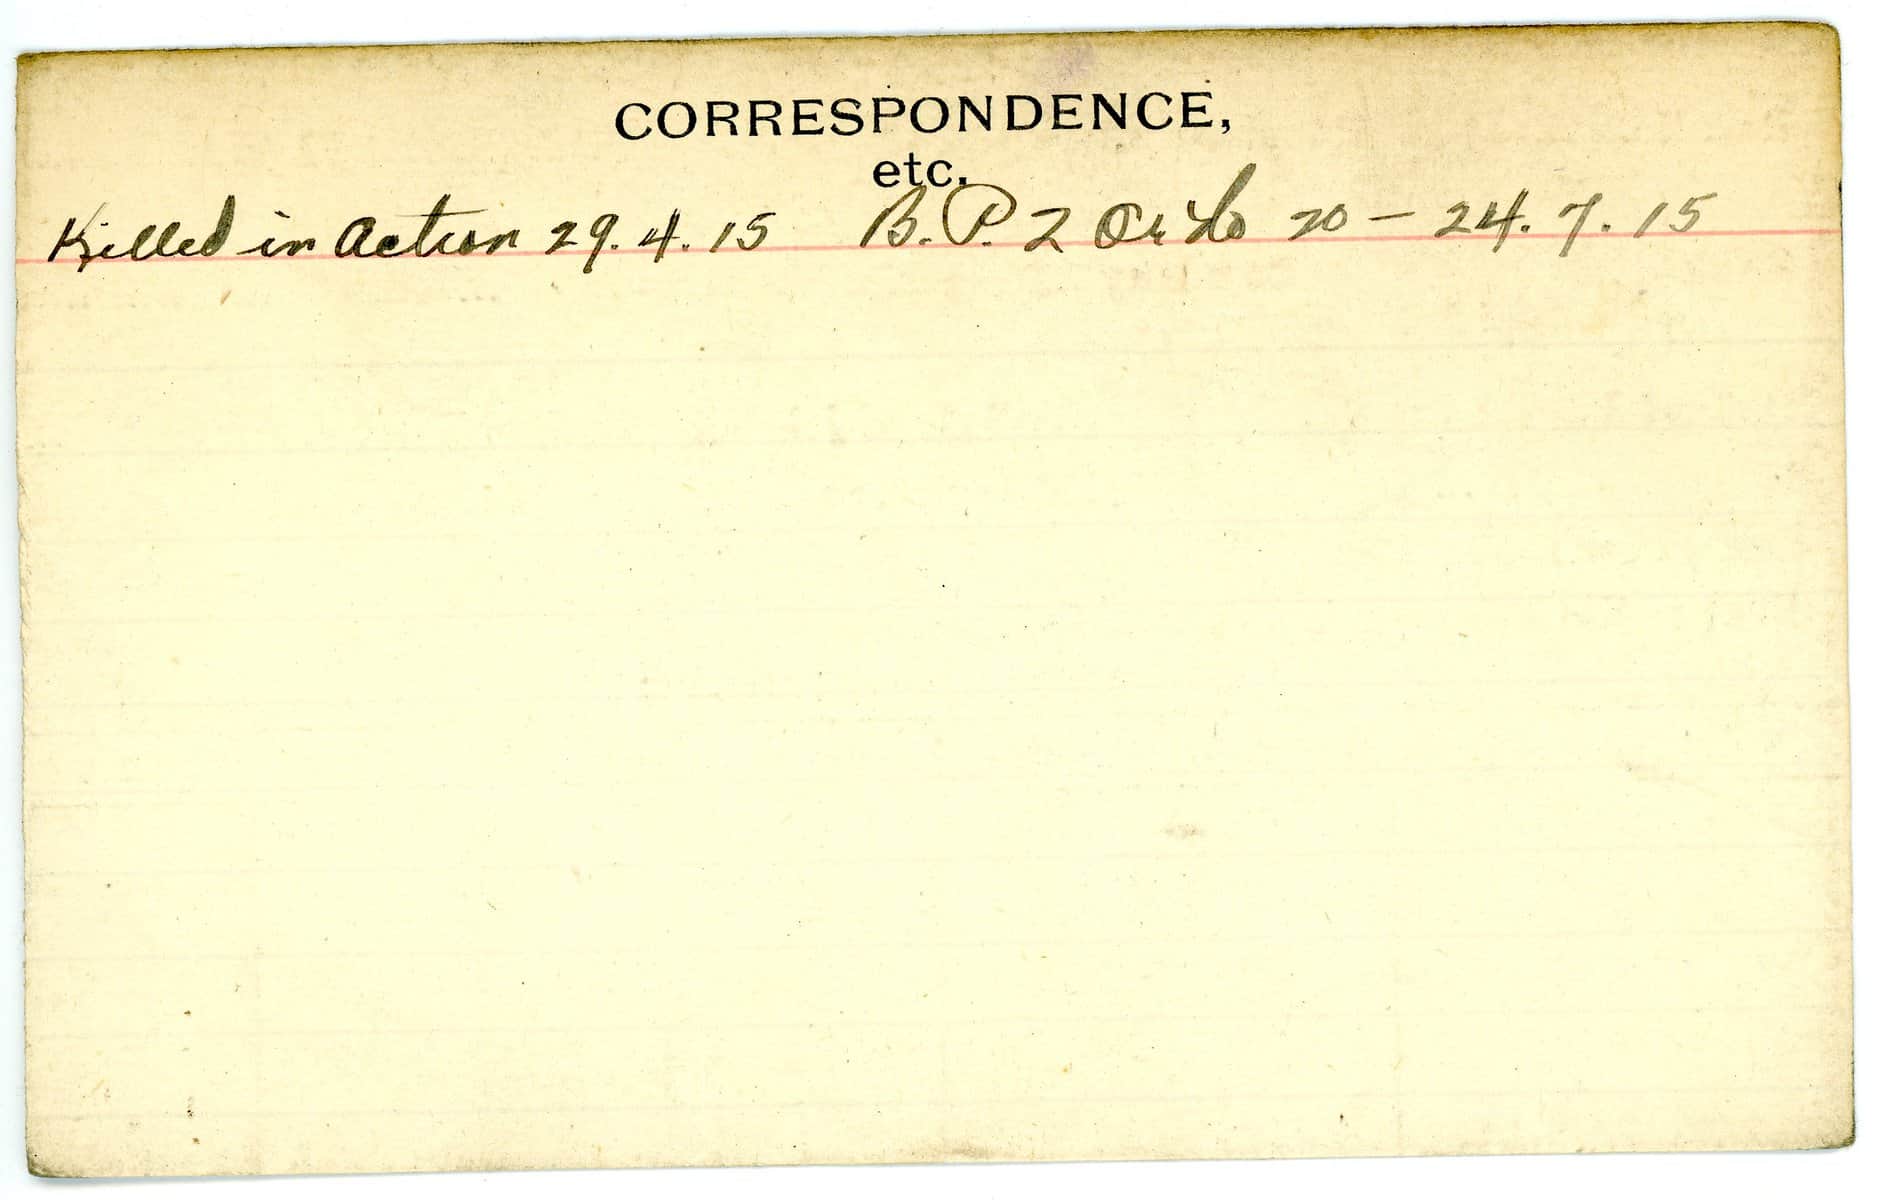 CORRESPONDENCE,
etc.
Killed in Action 29.4.15 B.P. 2 Or 20 - 24.7.15